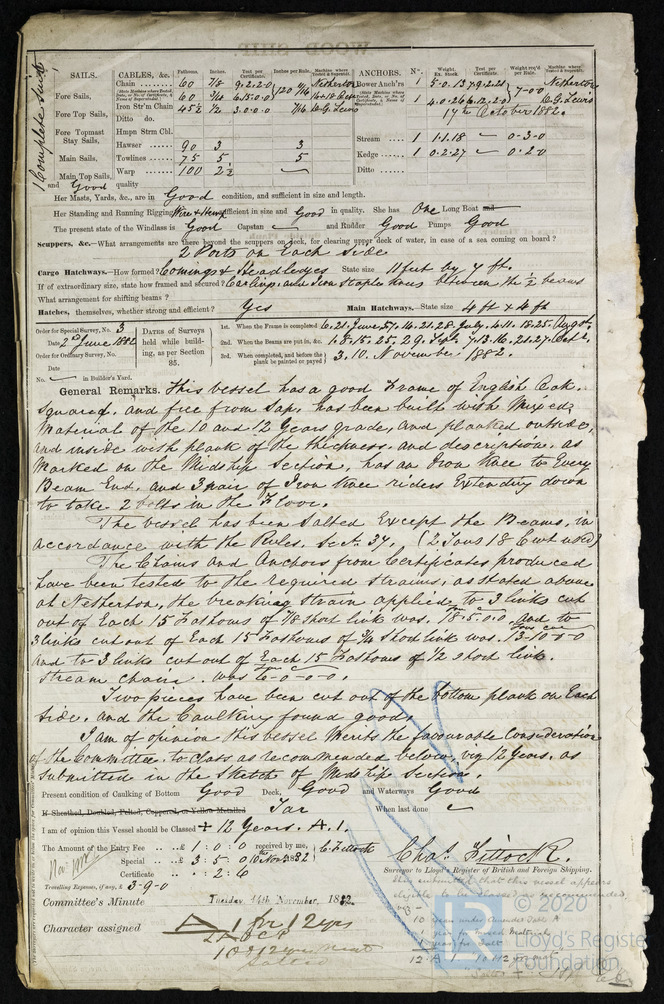 1 Complete Suit
SAILS.
Fore Sails,
Fore Top Sails,
Fore Topmast
Stay Sails,
Main Sails,
Main Top Sails,
and Good quality
CABLES, &c. Fathoms. Inches. Test per Certificate. Inches per Rule. Machine where Tested & Superntd.
Chain 60 7/8 9.2.2.0 120 Netherton
60 3/4 6.15.0.0
Iron Str'm Chain 45 1/2 1/2 3.0.0.0 7/16 C. G. Lewis
Ditto do.
Hmpn Strm Cbl.
Hawser 90 3 3
Towlines 75 5 5
Warp 100 2 1/2
ANCHORS. No. Weight. Ex. Stock. Test per Certificate. Weight req'd per Rule. Machine where Tested & Superntd.
Bower Anch'rs 1 5.0.13 7.9.2.21 7-0-0 Netherton
1 4.0.26 6.12.2.0 C.G. Lewis
17th October 1882.
Stream 1 1.1.18 0-3-0
Kedge 1 0.2.27 0.2.0
Ditto
Her Masts, Yards, &c., are in Good condition, and sufficient in size and length.
Her Standing and Running Rigging Wire & Hemp sufficient in size and Good in quality. She has One Long Boat and
The present state of the Windlass is Good Capstan and Rudder Good Pumps Good
Scuppers, &c.—What arrangements are there beyond the scuppers on deck, for clearing upper deck of water, in case of a sea coming on board?
2 Ports on Each Side
Cargo Hatchways.—How formed? Comings & Headledges State size 11 feet by 7 ft.
If of extraordinary size, state how framed and secured? Carlings and Iron Staple Knees between the 1/2 beams
What arrangement for shifting beams?
Hatches, themselves, whether strong and efficient? Yes Main Hatchways.—State size 4 ft x 4 ft
Order for Special Survey, No. 3
Date 2nd June 1882
Order for Ordinary Survey, No.
Date
No. in Builder's Yard.
DATES of Surveys held while building, as per Section 35.
1st. When the Frame is completed 6.21. June 5.7.14.21.28 July, 4.11.18.25. Augst.
2nd. When the Beams are put in, &c. 1.8.15.25.29. Sept. 7.13.16.21.27. Oct.
3rd. When completed, and before the plank be painted or payed 3.10. November 1882.
General Remarks. This vessel has a good Frame of English Oak,
Squared, and free from Sap, has been built with Mixed
Material of the 10 and 12 Years grade, and planked outside,
and inside with plank of the thickness and description, as
Marked on the Midship Section, has an Iron Knee to Every
Beam End, and 3 pair of Iron Knee riders Extending down
to take 2 bolts in the Floor.
The vessel has been Salted Except the Beams, in
accordance with the Rules. Sect. 37. (2 Tons 18 Cwt used)
The Chains and Anchors from Certificates produced
have been tested to the required strains, as stated above
at Netherton, the breaking strain applied to 3 links cut
out of Each 15 Fathoms of 7/8 short link was. 18.5.0.0 and to
3 links cut out of Each 15 Fathoms of 3/4 short link was. 13-10-0-0
and to 3 links cut out of Each 15 Fathoms of 1/2 short link.
Stream chain. was 6-0-0-0.
Two pieces have been cut out of the bottom plank on Each
Side, and the Caulking found good.
I am of opinion this vessel Merits the favourable Consideration
of the Committee. to class as recommended below, viz 12 Years. as
submitted in the Sketch of Midship Section.
Present condition of Caulking of Bottom Good Deck, Good and Waterways Good
If Sheathed, Doubled, Felted, Coppered, or Yellow Metalled Tar When last done
I am of opinion this Vessel should be Classed 12 Years. A. 1.
The Amount of the Entry Fee £ 1 : 0 : 0 received by me, C. Fittock
Special £ 3 : 5 : 0 10 Novr. 1882
Certificate : 2 : 6
Travelling Expenses, if any, £ 3-9-0
Chas. Fittock.
Surveyor to Lloyd's Register of British and Foreign Shipping.
It is submitted that this vessel appears
eligible to be classed as recommended,
viz
10 years under Amended Table A
1 year for Mixed Material
1 year for Salt
12 A 1
Committee's Minute Tuesday 14th November, 1882.
Character assigned A 1 for 12 yrs
© 2020
Lloyd's Register
Foundation